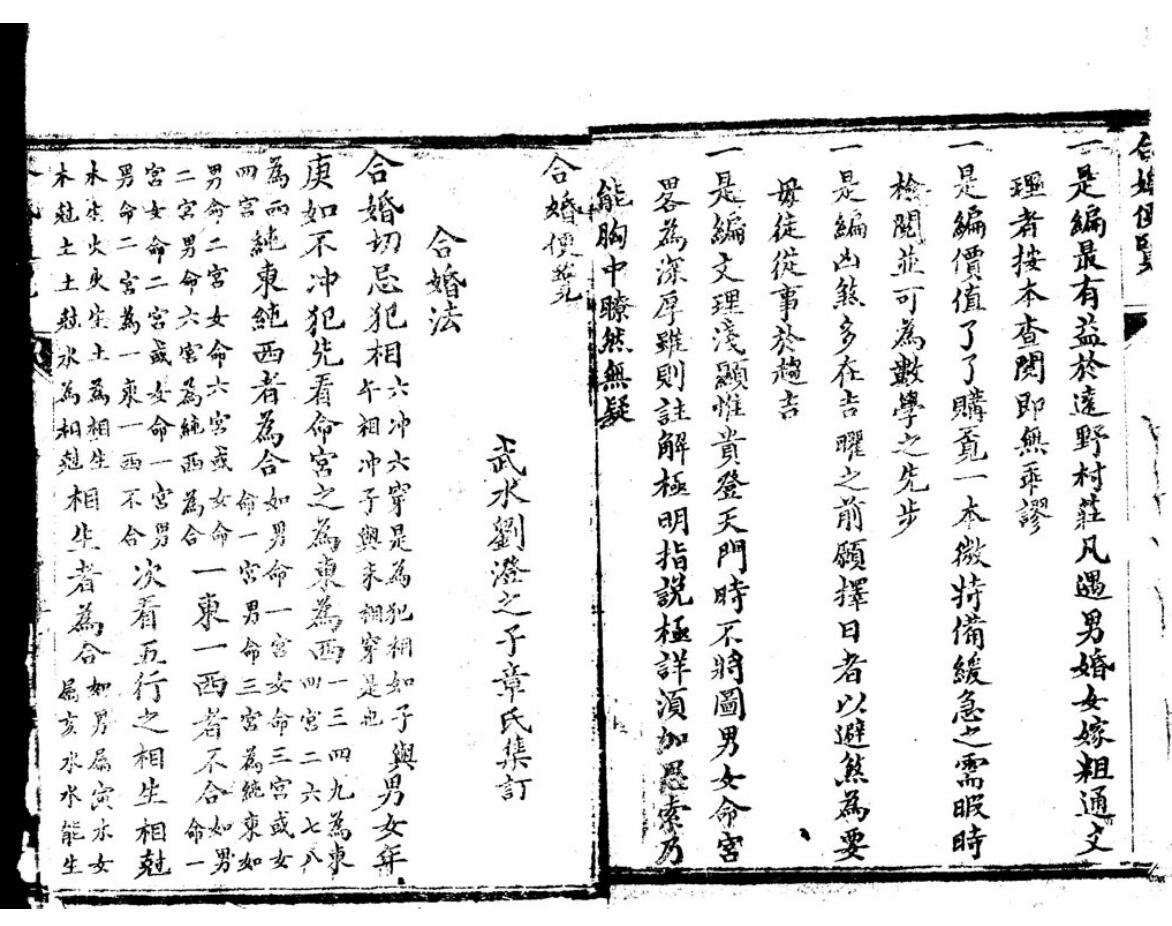 合婚便覽
一是編最有益於遠野村莊凡遇男婚女嫁粗通文
理者按本查閱即無乖謬
一是編價值了了購覓一本微特備緩急之需暇時
檢閱並可為數學之先步
一是編凶煞多在吉曜之前願擇日者以避煞為要
毋徒從事於趨吉
一是編文理淺顯惟貴登天門時不將圖男女命宮
畧為深厚雖則註解極明指說極詳須加思索乃
能胸中瞭然無疑
合婚便覽
武水劉澄之子章氏集訂
合婚法
合婚切忌犯相六冲六穿是為犯相如子與
午相冲子與未相穿是也男女年
庚如不冲犯先看命宮之為東為西一三四九為東
四宮二六七八
為西四宮純東純西者為合如男命一宮女命三宮或女
命一宮男命三宮為純東如
男命二宮女命六宮或女命
二宮男命六宮為純西為合一東一西者不合如男
命一
宮女命二宮或女命一宮男
男命二宮為一東一西不合次看五行之相生相尅
木生火火生土為相生
木尅土土尅水為相尅相生者為合如男屬寅木女
屬亥水水能生